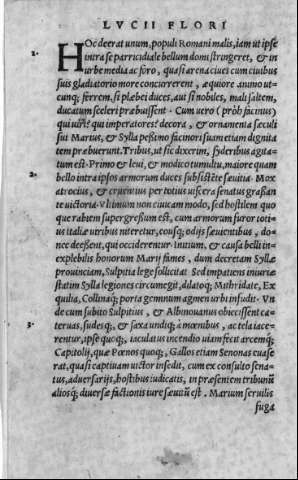 LVCII FLORI
2. HOc deerat unum, populi Romani malis, iam ut ipse
intra se parricidiale bellum domi stringeret, & in
urbe media ac foro, quasi arena ciues cum ciuibus
suis gladiatorio more concurrerent, æquiore animo ut-
cunq; ferrem, si plebei duces, aut si nobiles, mali saltem,
ducatum sceleri præbuissent. Cum uero (prób facinus)
qui uiri? qui imperatores? decora, & ornamenta sæculi
sui Marius, & Sylla peßimo facinori suam etiam dignita
tem præbuerunt. Tribus, ut sic dixerim, syderibus agita-
tum est. Primo & leui, & modico tumultu, maiore quam
2. bello intra ipsos armorum duces subsistēte sæuitia. Mox
atrocius, & cruentius per totius uiscera senatus grassan
te uictoria. Vltimum non ciuicam modo, sed hostilem quo
que rabiem supergressum est, cum armorum furor toti-
us italiæ uiribus niteretur, eousq; odijs sæuientibus, do-
nec deessent, qui occiderentur. Initium, & causa belli in-
explebilis honorum Marij fames, dum decretam Syllæ
prouinciam, Sulpitia lege sollicitat. Sed impatiens iniuriæ
statim Sylla legiones circumegit, dilatoq; Mithridate, Ex
quilia, Collinaq; porta geminum agmen urbi infudit. Vn
de cum subito Sulpitius, & Albinouanus obiecissent ca-
3. teruas, sudesq;, & saxa undiq; à mœnibus, ac tela iace-
rentur, ipse quoq;, iaculatus incendio uiam fecit arcemq;
Capitolij, quæ Pœnos quoq;, Gallos etiam Senonas euase
rat, quasi captiuam uictor insedit, cum ex consulto sena-
tus, aduersarijs, hostibus iudicatis, in præsentem tribunũ
aliosq; diuersæ factionis iure sæuitũ est. Marium seruilis
fuga